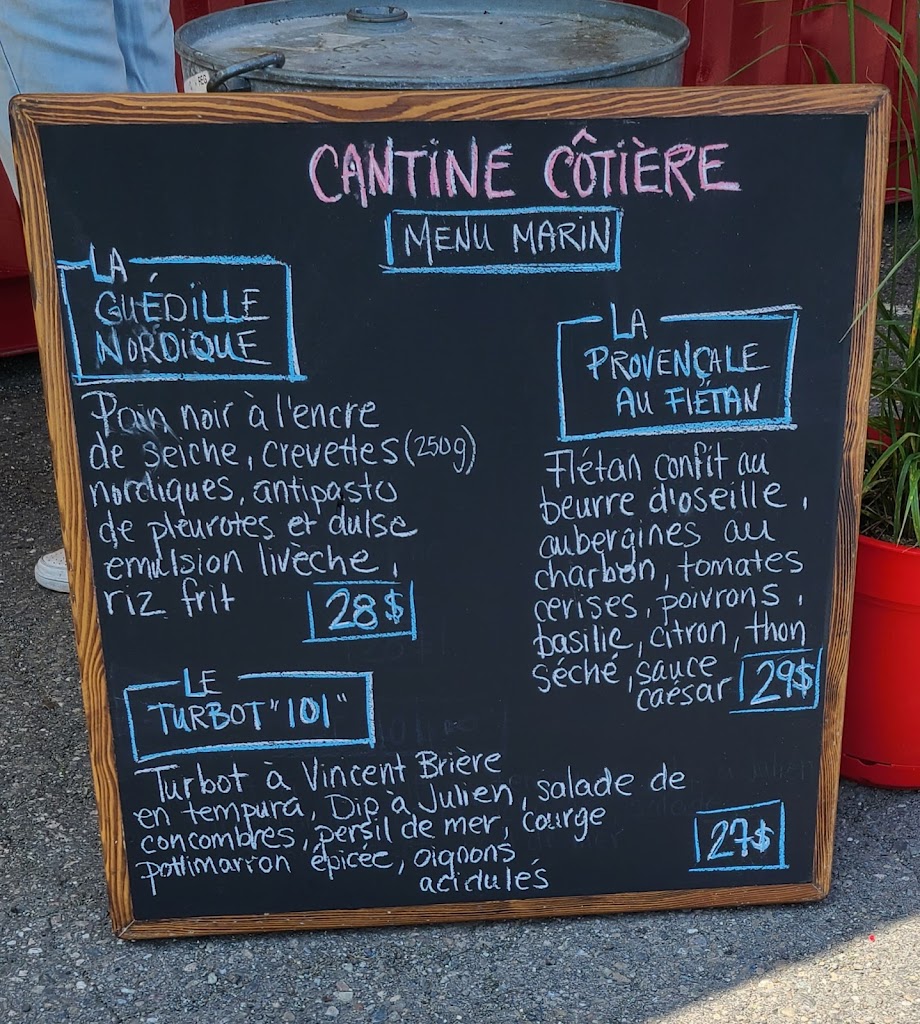 CANTINE CÔTIÈRE
MENU MARIN
LA
GUÉDILLE
NORDIQUE
Pain noir à l'encre
de seiche, crevettes (250g)
nordiques, antipasto
de pleurotes et dulse
emulsion livèche,
riz frit
28$
LA
PROVENÇALE
AU FLÉTAN
Flétan confit au
beurre d'oseille,
aubergines au
charbon, tomates
cerises, poivrons,
basilic, citron, thon
séché, sauce
caesar
29$
LE
TURBOT "101"
Turbot à Vincent Brière
en tempura, Dip à Julien, salade de
concombres, persil de mer, courge
pottimarron épicée, oignons
acidulés
27$